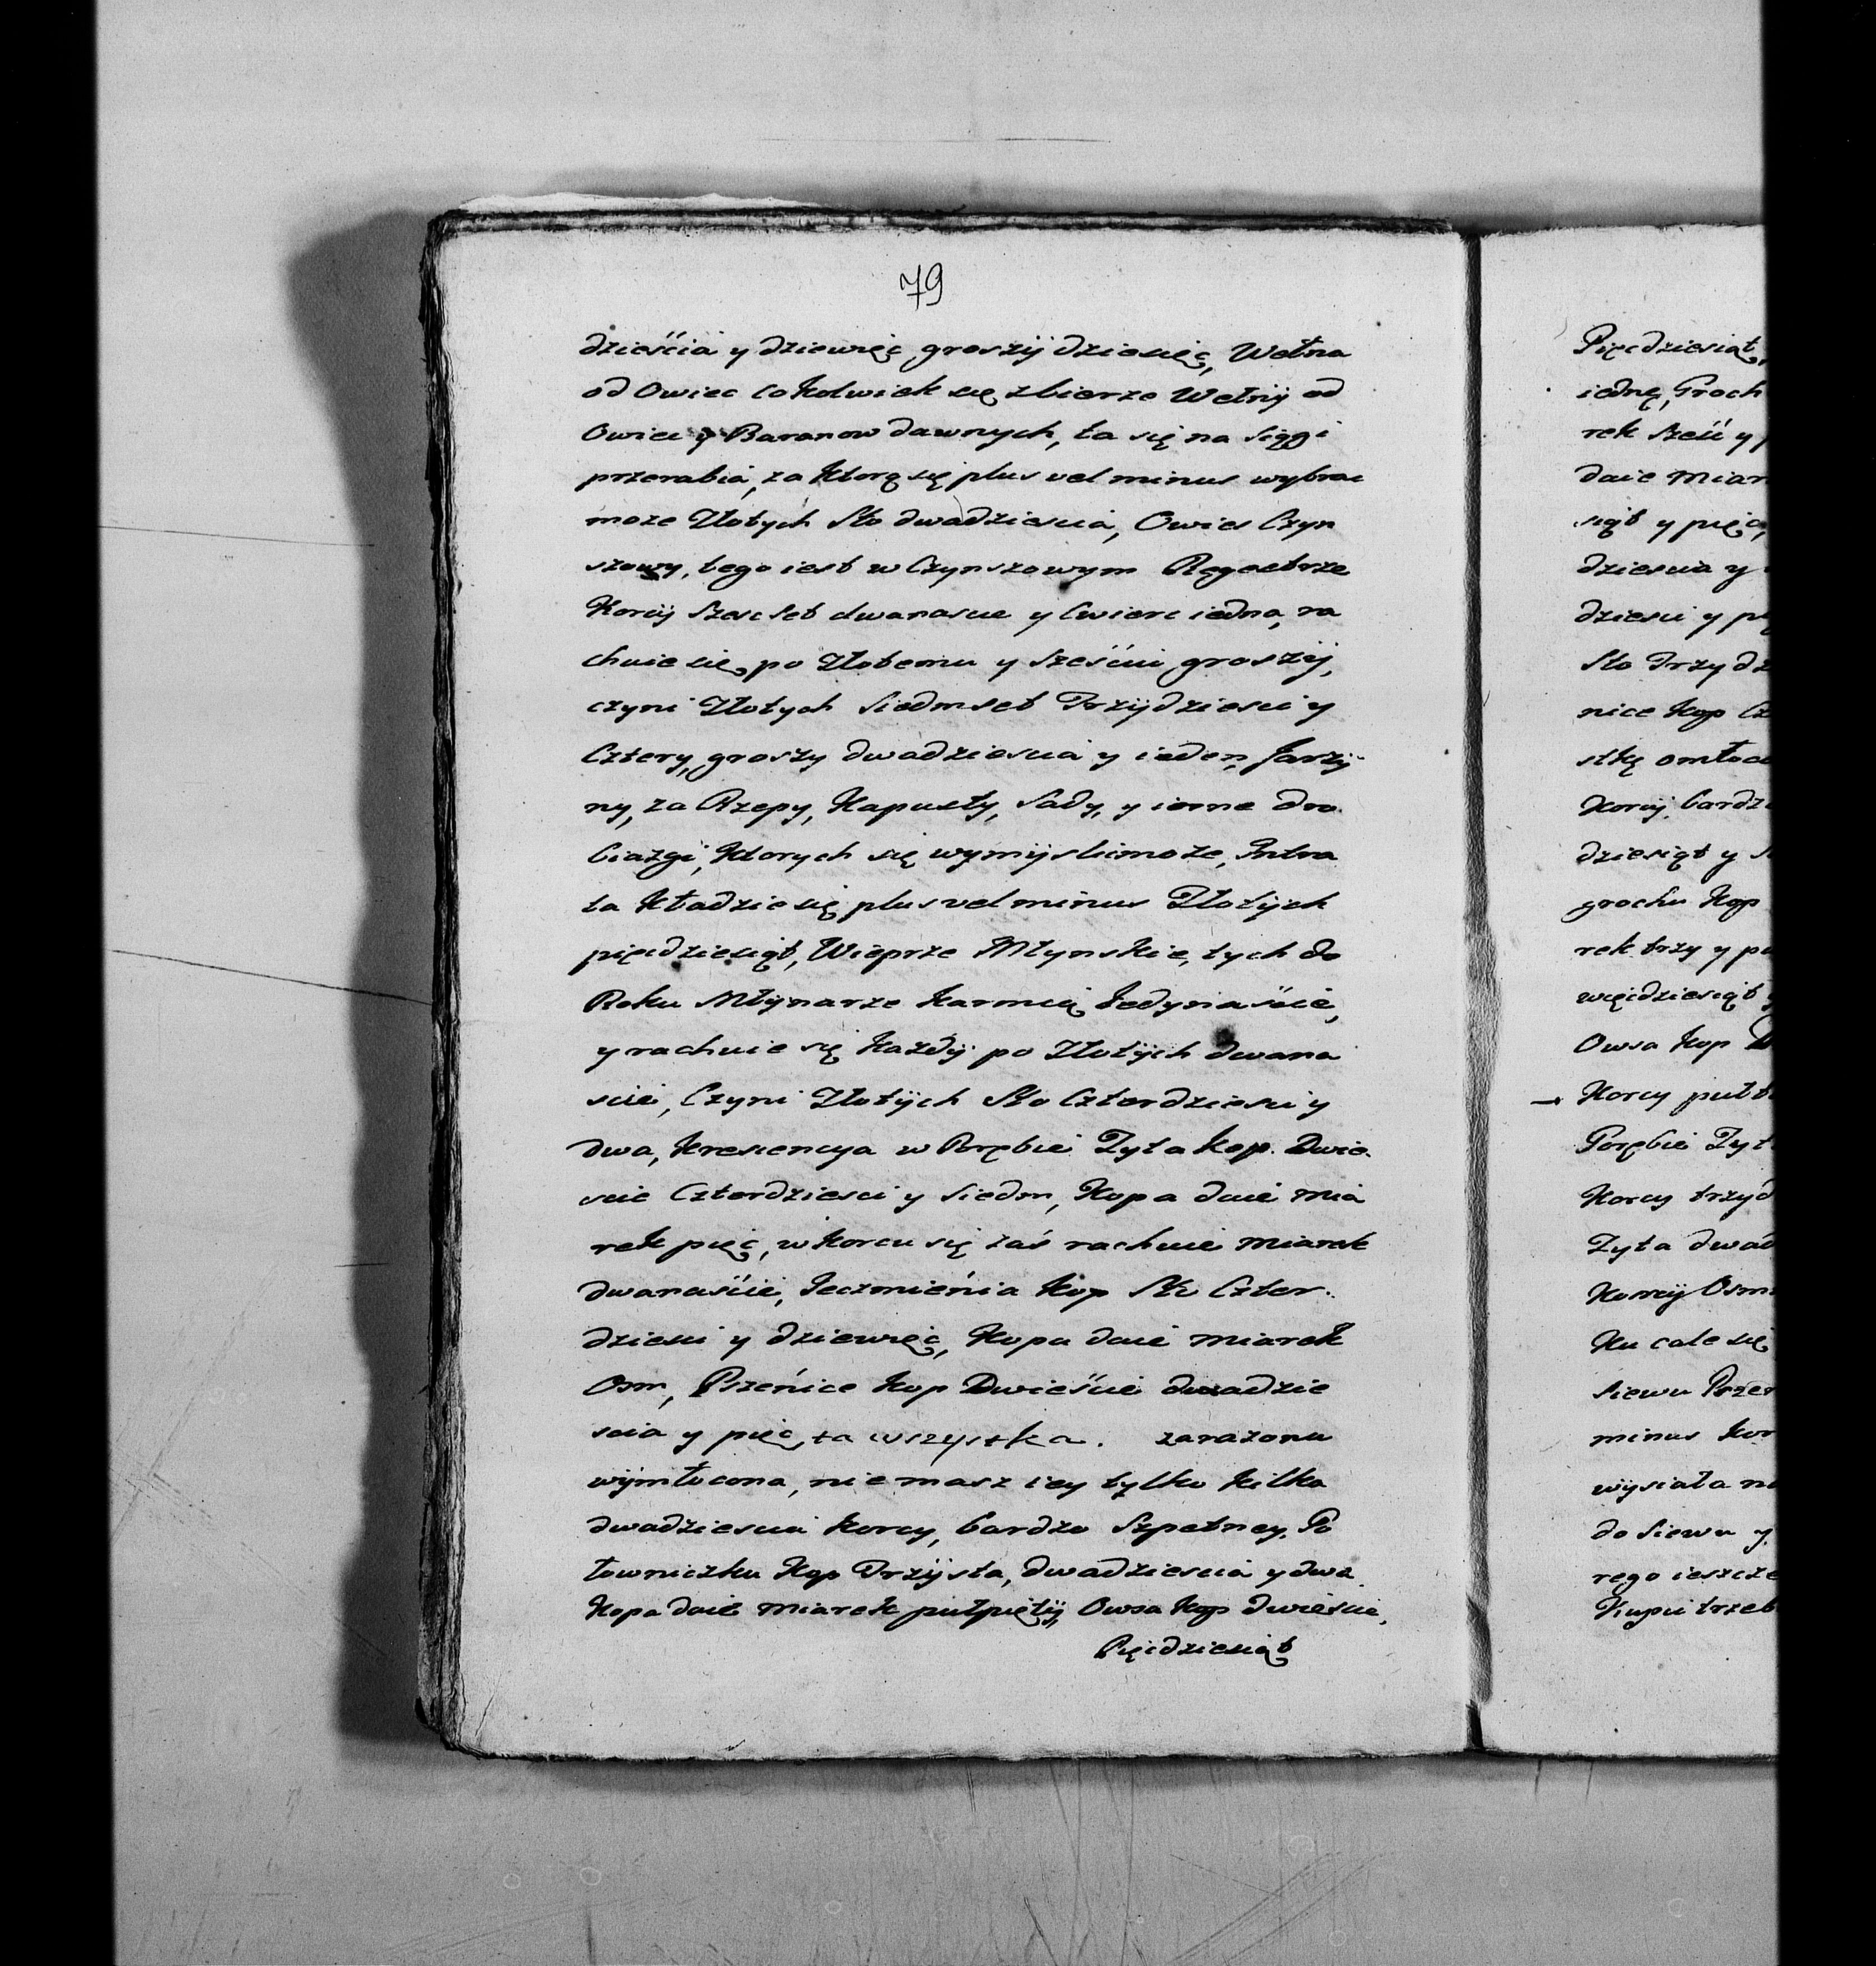 79
dzieścia y dziewięć groszÿ dziesięć, Wełna
od Owiec Cokolwiek się zbierze Wełnÿ od
Owiec y Baranow dawnych, ta się na
przerabia, za Ktorą się plus vel minus wybrac
moze Złotych Sto dwadziescia, Owies Czyn
szowy, tego iest w Czynszowym Regestrze
Korcÿ Szescset dwanascie y Cwierc iedna, ra
chuie się po Złotemu y Sześciu groszÿ,
czyni Złotych Siedmset Trzÿdziesci y
Cztery, groszy dwadziescia y ieden, Jarzÿ
ny, za Rzepy, Kapusty, Sady, y inne dro
biazgi, Ktorych się wymÿslic moze, Intra
ta Kładzie się plus vel minus Złotÿch
pięcdziesiąt, Wieprze Młynskie, tych do
Roku Młÿnarze Karmią Jedynaście,
y rachuie się Kazdÿ po Złotÿch dwana
scie, Czyni Złotÿch Sto Czterdziesci y
dwa, Krescencya w Porębie Zyta Kop. Dwie
scie Czterdziesci y Siedm, Kopa daie Mia
rek pięć, w Korcu się zaś rachuie Miarek
dwanaście, Jeczmienia Kop Sto Czter
dziesci y dziewięć, Kopa daie Miarek
Osm, Pszenice Kop Dwieście dwadzie
scia y pięć, ta wszystka. zarazona
wÿmłocona, nie masz iey tylko Kilka
dwadziescia Korcy, bardzo Szpetney. Po
łowniczku Kop Trzÿsta, dwadziescia y dwa
Kopa daie Miarek pułpiętÿ, Owsa Kop dwiescie,
Pięcdziesiąt
Pięcdziesiąt,
iednę, Groch
rek Sześć y
daie Miar
siąt y pięć,
dziescia y
dziesci y
Sto Trzy dz
nice Kop Cz
stkę omłoc
Korcÿ, bardz
dziesiąt y
grochu Kop
rek trzy y
więcdziesiąt
Owsa Kop
Korcy puł
Porębie Zyt
Korcy trzyd
Zyta dwad
Korcÿ Osm
Ku cale się
Siewu Przen
minus Kor
wÿsiała
do Siewu y
rego ieszcze
Kupić trzeb